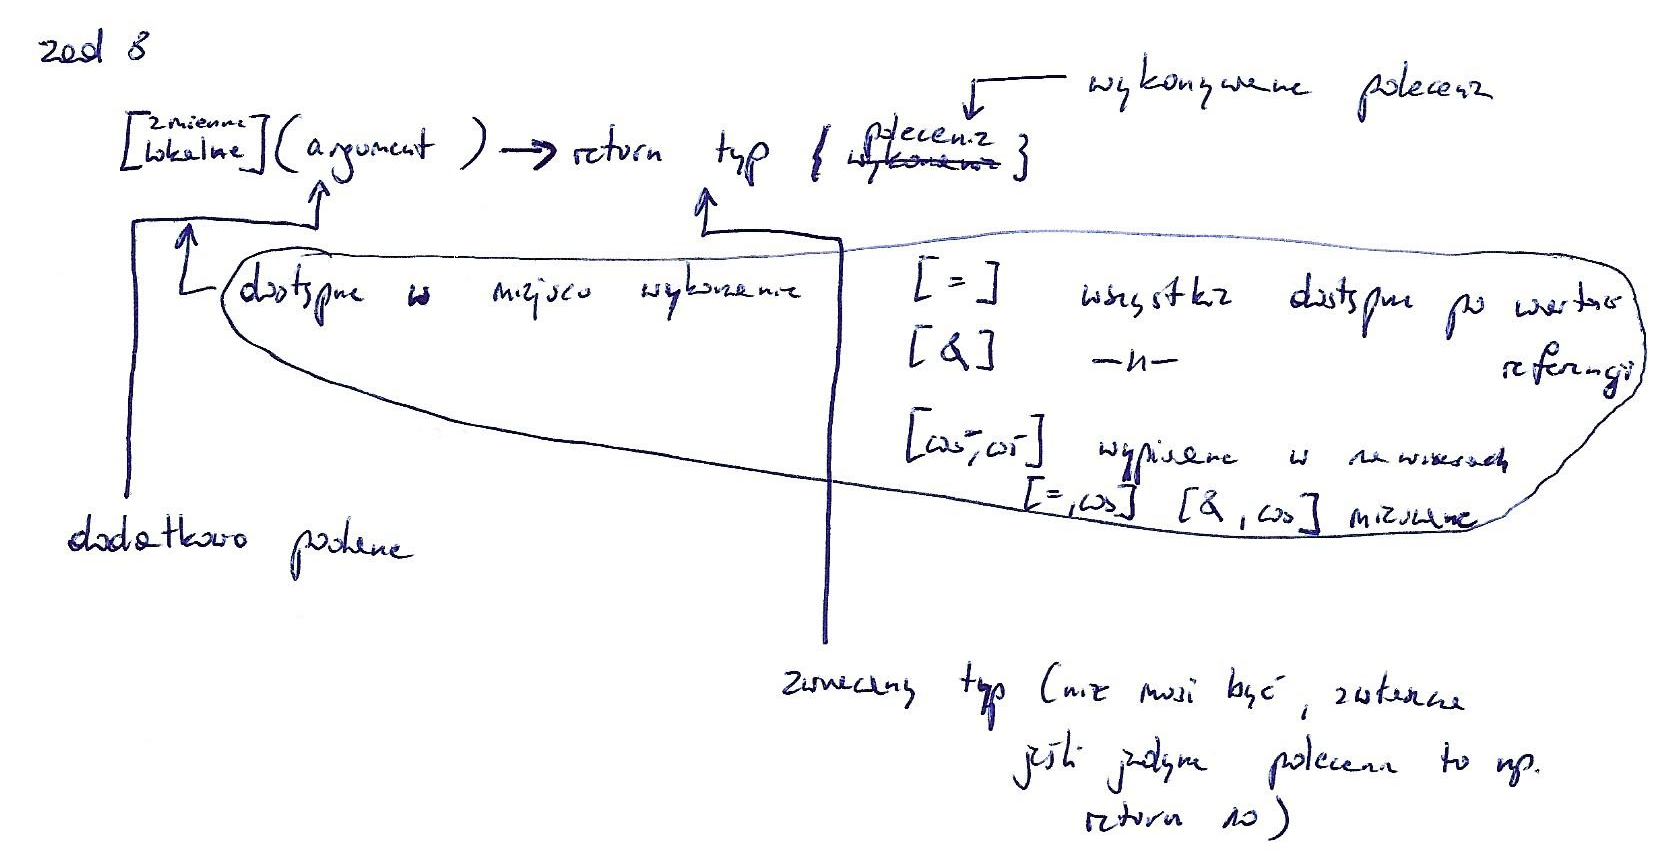 zad 8
wykonywane polecenie
[zmienne lokalne](argument) → return typ { polecenie wykonanie }
dostępne w miejscu wykonania
[=] wszystkie dostępne po wartości
[&] —||— referencji
[coś, coś] wypisane w nawiasach
[=, coś] [&, coś] mieszane
dodatkowo podane
zwracany typ (nie musi być, zwłaszcza
jeśli jedyne polecenie to np.
return 10)